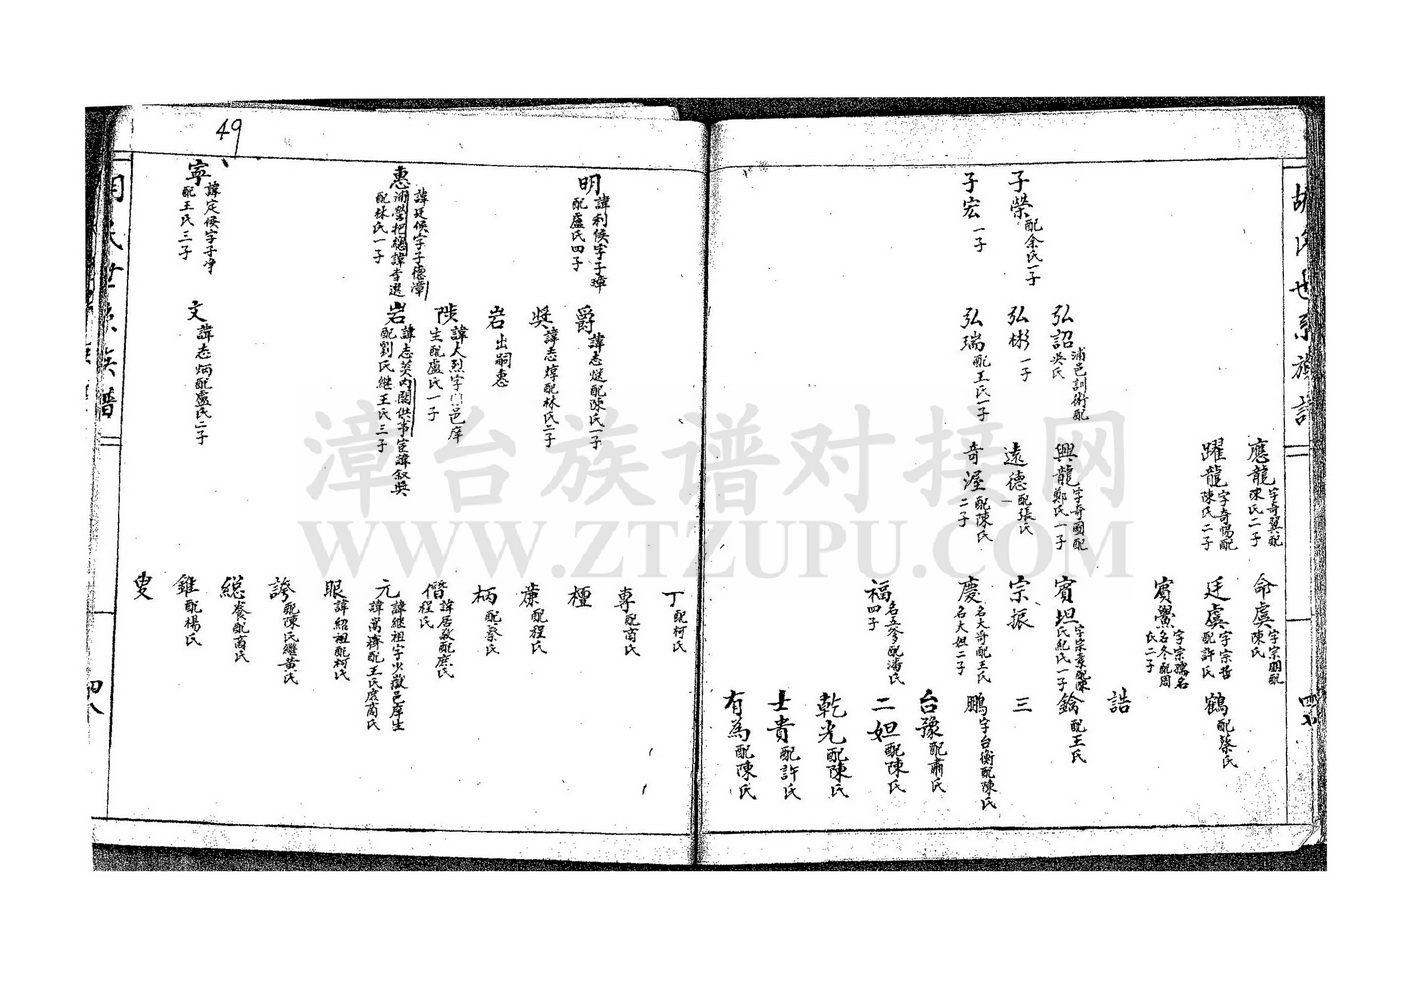 胡氏世系族譜
四七
應龍 字奇翼配陳氏二子
命虞 字宗明配陳氏
躍龍 字奇惕配陳氏二子
廷虞 字宗哲配許氏
鶴 配蔡氏
賓黌 字宗孺名名冬配周氏二子
誥
子榮 配余氏一子
弘詔 浦邑訓術配吳氏
興龍 字奇國配鄭氏一子
賓坦 字宗素配陳氏紀氏一子
鑰 配王氏
弘彬 一子
遠德 配張氏一
宗振
三
子宏 一子
弘瑞 配王氏一子
奇渥 配陳氏二子
慶 名大奇配王氏名大妲二子
鵬 字台衡配陳氏
台豫 配蕭氏
福 名五參配潘氏四子
二妲 配陳氏
乾光 配陳氏
士貴 配許氏
有為 配陳氏
49
明 諱利候字子璋配盧氏四子
爵 諱志燧配陳氏一子
丁 配柯氏
奬 諱志焞配林氏二子
專 配商氏
檀
岩 出嗣惠
陟 諱大烈字邑庠生配盧氏一子
薕 配程氏
惠 諱廷候字子德漳浦營把總諱李選配林氏一子
岩 諱志英內閣供事宦諱叙奬配劉氏繼王氏三子
柄 配蔡氏
偕 諱居敬配庶氏程氏
元 諱繼祖字少徵邑庠生諱萬濟配王氏庶商氏
眼 諱紹祖配柯氏
寧 諱定候字子净配王氏三子
文 諱志炳配盧氏二子
誇 配陳氏繼黄氏
總 養配商氏
錐 配楊氏
叟
四八
漳台族谱对接网
WWW.ZTZUPU.COM